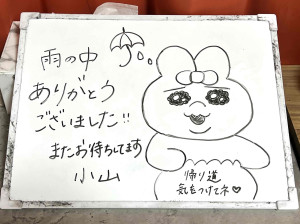 雨の中
ありがとう
ございました!!
またお待ちしてます
小山
帰り道
気をつけてネ♡